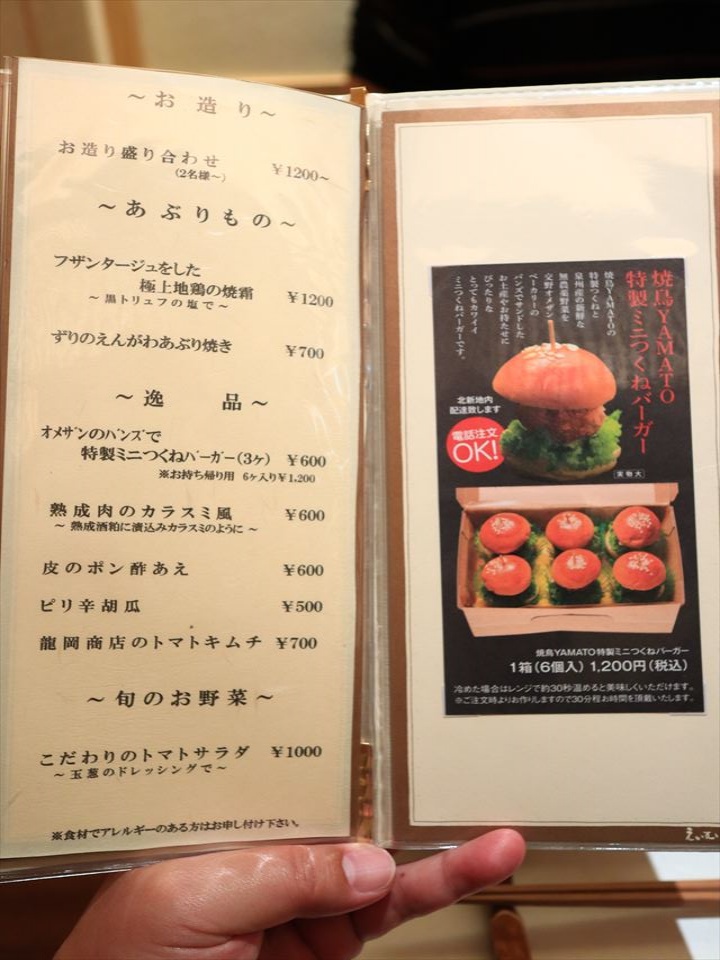 ～お造り～
お造り盛り合わせ
(2名様～)
¥1200～
～あぶりもの～
フザンタージュをした
極上地鶏の焼霜 ¥1200
～黒トリュフの塩で～
ずりのえんがわあぶり焼き ¥700
～逸 品～
オメザンのバンズで
特製ミニつくねバーガー(3ヶ) ¥600
※お持ち帰り用 6ケ入り¥1,200
熟成肉のカラスミ風 ¥600
～熟成酒粕に漬込みカラスミのように～
皮のポン酢あえ ¥600
ピリ辛胡瓜 ¥500
龍岡商店のトマトキムチ ¥700
～旬のお野菜～
こだわりのトマトサラダ ¥1000
～玉葱のドレッシングで～
※食材でアレルギーのある方はお申し付け下さい。
焼鳥YAMATO
特製ミニつくねバーガー
焼鳥YAMATOの
特製つくねと
泉州産の新鮮な
無農薬野菜を
交野オメザン
ベーカリーの
バンズでサンドした
お土産やお持たせに
ぴったりな
とってもカワイイ
ミニつくねバーガーです。
北新地内
配達致します
電話注文
OK!
実物大
焼鳥YAMATO特製ミニつくねバーガー
1箱(6個入) 1,200円(税込)
冷めた場合はレンジで約30秒温めると美味しくいただけます。
※ご注文時よりお作りしますので30分程お時間を頂戴いたします。